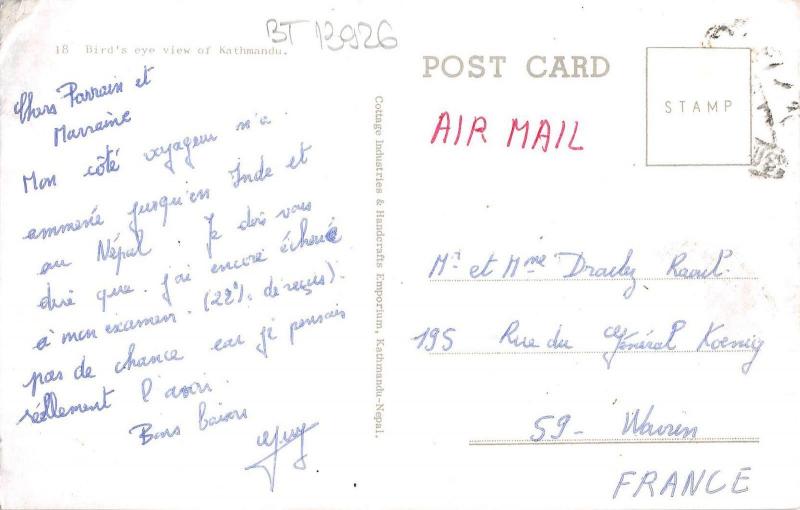 BT 13926
18 Bird's eye view of Kathmandu.
Chers Parrain et
Marraine
Mon côté voyageur m'a
emmené jusqu'en Inde et
au Népal Je dois vous
dire que j'ai encore échoué
à mon examen. (22% de reçus).
pas de chance car je pensais
réellement l'avoir.
Bons baisers
Guy
Cottage Industries & Handcrafts Emporium, Kathmandu-Nepal.
POST CARD
AIR MAIL
STAMP
Mr et Mme Raoul.
195 Rue du Général Koenig
59 - Wavrin
FRANCE